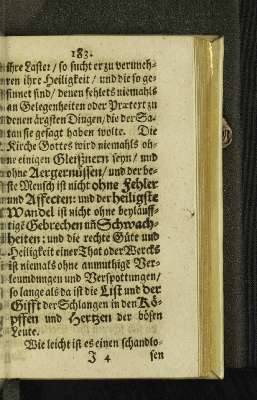 183.
ihre Laster/ so sucht er zu veruneh-
ren ihre Heiligkeit / und die so ge-
sinnet sind/ denen fehlets niemahls
an Gelegenheiten oder Prætext zu
denen ärgsten Dingen/ die der Sa-
tan sie gesagt haben wolte. Die
Kirche Gottes wird niemahls oh-
ne einigen Gleißnern seyn/ und
ohne Aergernüssen/ und der be-
ste Mensch ist nicht ohne Fehler
und Affecten: und der heiligste
Wandel ist nicht ohne beyläuff-
tige Gebrechen uñ Schwach-
heiten; und die rechte Güte und
Heiligkeit einer That oder Wercks
ist niemals ohne anmuthige Ver-
leumdnungen und Verspottungen/
so lange als da ist die List und der
Gifft der Schlangen in den Kö-
pffen und Hertzen der bösen
Leute.
Wie leicht ist es einen schandlo-
J 4 sen